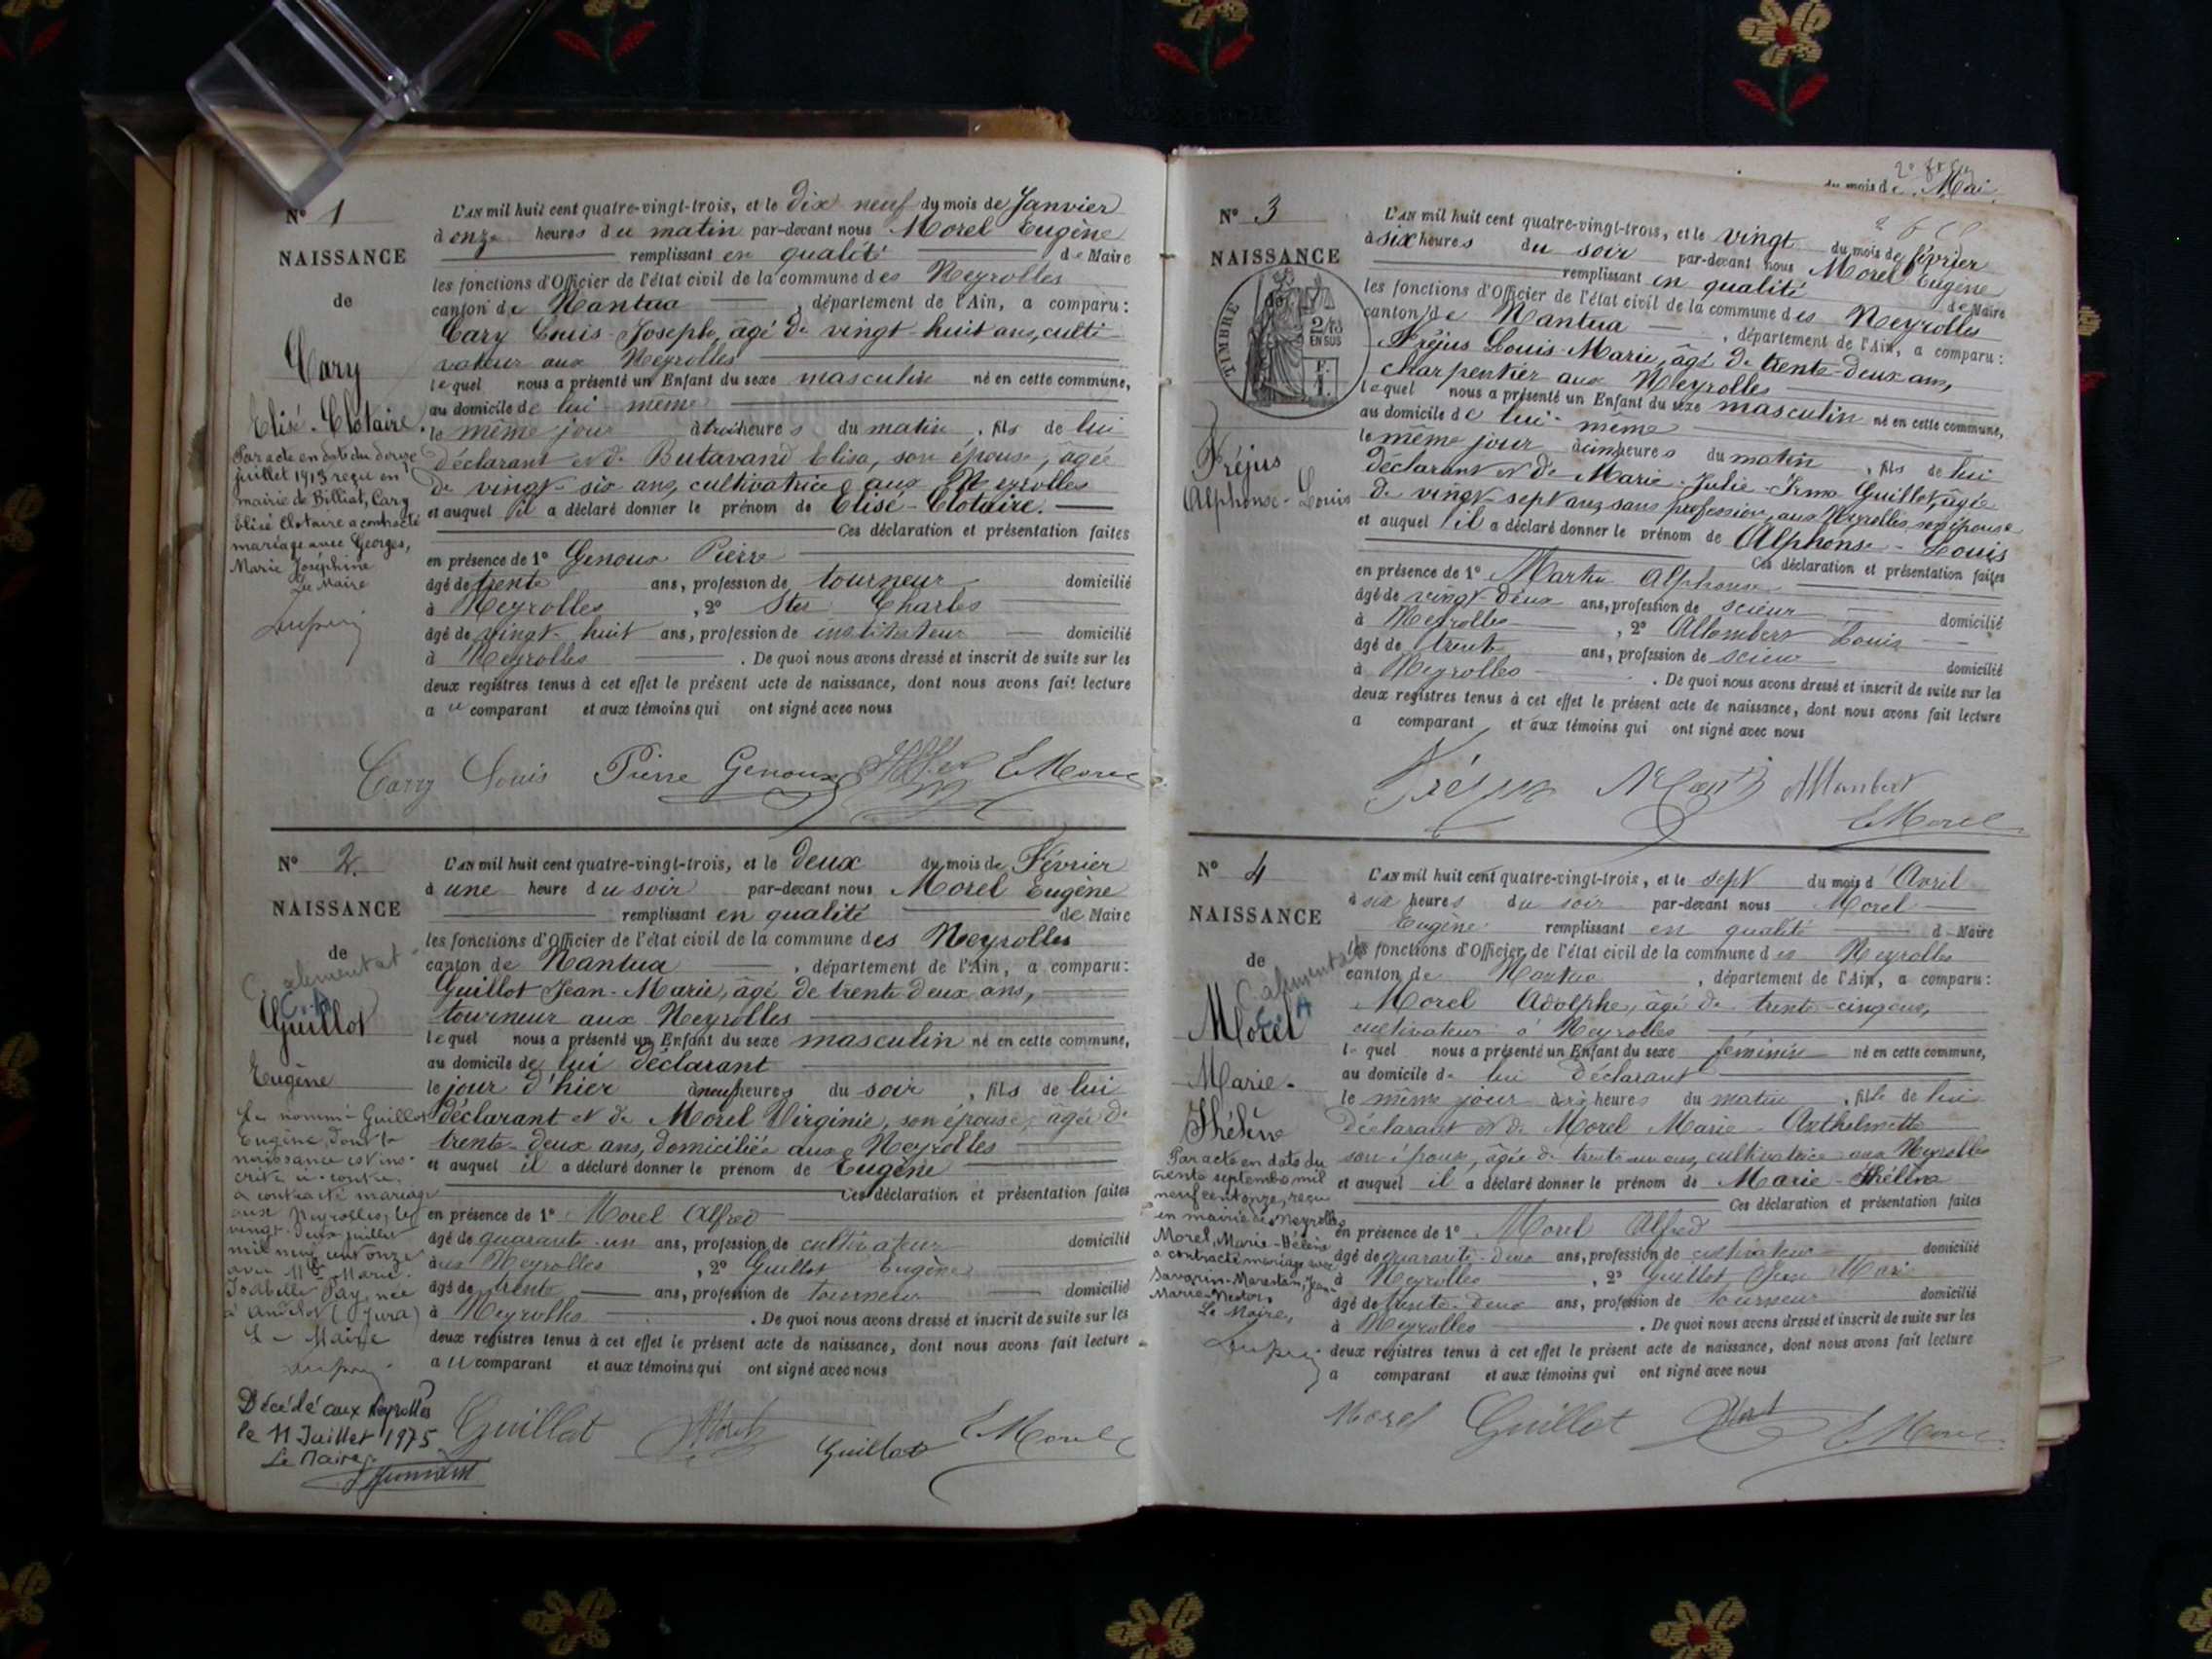 N° 1
NAISSANCE
de
Cary
Elisé-Clotaire
Par acte en date du douze
juillet 1913 reçu en
mairie de Billiat, Cary
Elisé Clotaire a contracté
mariage avec Georges,
Marie Joséphine
Le Maire
L'AN mil huit cent quatre-vingt-trois, et le dix neuf du mois de Janvier
à onze heures du matin par-devant nous Morel Eugène
remplissant en qualité de Maire
les fonctions d'Officier de l'état civil de la commune des Neyrolles
canton de Nantua, département de l'Ain, a comparu:
Cary Louis-Joseph, âgé de vingt-huit ans, culti-
vateur aux Neyrolles
lequel nous a présenté un Enfant du sexe masculin né en cette commune,
au domicile de lui-même
le même jour à trois heures du matin, fils de lui
déclarant et de Butavand Elisa, son épouse, âgée
de vingt-six ans, cultivatrice aux Neyrolles
et auquel il a déclaré donner le prénom de Elisé-Clotaire.
Ces déclaration et présentation faites
en présence de 1° Genoux Pierre
âgé de trente ans, profession de tourneur domicilié
à Neyrolles, 2° Charles
âgé de vingt-huit ans, profession de instituteur domicilié
à Neyrolles. De quoi nous avons dressé et inscrit de suite sur les
deux registres tenus à cet effet le présent acte de naissance, dont nous avons fait lecture
au comparant et aux témoins qui ont signé avec nous
Cary Louis Pierre Genoux E Morel
N° 2.
NAISSANCE
de
C. alimentat
C.A
Guillot
Eugène
Le nommé Guillot
Eugène, dont la
naissance est ins-
crite ci-contre,
a contracté mariage
aux Neyrolles, le
vingt-deux juillet
mil neuf cent onze
avec Mlle Marie-
Isabelle Pay, née
à Andelot (Jura)
Le Maire
Décédé aux Neyrolles
le 11 Juillet 1975
Le Maire,
L'AN mil huit cent quatre-vingt-trois, et le deux du mois de Février
à une heure du soir par-devant nous Morel Eugène
remplissant en qualité de Maire
les fonctions d'Officier de l'état civil de la commune des Neyrolles
canton de Nantua, département de l'Ain, a comparu:
Guillot Jean-Marie, âgé de trente deux ans,
tourneur aux Neyrolles
lequel nous a présenté un Enfant du sexe masculin né en cette commune,
au domicile de lui déclarant
le jour d'hier à neuf heures du soir, fils de lui
déclarant et de Morel Virginie, son épouse, âgée de
trente-deux ans, domiciliée aux Neyrolles
et auquel il a déclaré donner le prénom de Eugène
Ces déclaration et présentation faites
en présence de 1° Morel Alfred
âgé de quarante-un ans, profession de cultivateur domicilié
aux Neyrolles, 2° Guillot Eugène
âgé de trente ans, profession de tourneur domicilié
à Neyrolles. De quoi nous avons dressé et inscrit de suite sur les
deux registres tenus à cet effet le présent acte de naissance, dont nous avons fait lecture
au comparant et aux témoins qui ont signé avec nous
Guillot Morel Guillot E Morel
du mois de Mai
N° 3
NAISSANCE
de
TIMBRE
2/10
EN SUS
Fréjus
Alphonse-Louis
L'AN mil huit cent quatre-vingt-trois, et le vingt du mois de février
à six heures du soir par-devant nous Morel Eugène
remplissant en qualité de Maire
les fonctions d'Officier de l'état civil de la commune des Neyrolles
canton de Nantua, département de l'Ain, a comparu:
Fréjus Louis-Marie, âgé de trente-deux ans,
charpentier aux Neyrolles
lequel nous a présenté un Enfant du sexe masculin né en cette commune,
au domicile de lui-même
le même jour à cinq heures du matin, fils de lui
déclarant et de Marie-Julie-Irma Guillot, âgée
de vingt-sept ans, sans profession, aux Neyrolles, son épouse
et auquel il a déclaré donner le prénom de Alphonse-Louis
Ces déclaration et présentation faites
en présence de 1° Martin Alphonse
âgé de vingt-deux ans, profession de scieur domicilié
à Neyrolles, 2° Allombert Louis
âgé de trente ans, profession de scieur domicilié
à Neyrolles. De quoi nous avons dressé et inscrit de suite sur les
deux registres tenus à cet effet le présent acte de naissance, dont nous avons fait lecture
a comparant et aux témoins qui ont signé avec nous
Fréjus Allombert
E Morel
N° 4
NAISSANCE
de
C. alimentat
C.A
Morel
Marie-
Thélène
Par acte en date du
trente septembre mil
neuf cent onze, reçu
en mairie des Neyrolles
Morel, Marie-Hélène
a contracté mariage avec
Savarin-Marestan, Jean-
Marie-Nestor,
Le Maire,
L'AN mil huit cent quatre-vingt-trois, et le sept du mois d'Avril
à six heures du soir par-devant nous Morel
Eugène remplissant en qualité d Maire
les fonctions d'Officier de l'état civil de la commune des Neyrolles
canton de Nantua, département de l'Ain, a comparu:
Morel Adolphe, âgé de trente-cinq ans,
cultivateur à Neyrolles
lequel nous a présenté un Enfant du sexe féminin né en cette commune,
au domicile de lui déclarant
le même jour à six heures du matin, fille de lui
déclarant et de Morel Marie-Anthelmette
son épouse, âgée de trente un ans, cultivatrice aux Neyrolles
et auquel il a déclaré donner le prénom de Marie-Thélène
Ces déclaration et présentation faites
en présence de 1° Morel Alfred
âgé de quarante-deux ans, profession de cultivateur domicilié
à Neyrolles, 2° Guillot Jean Marie
âgé de trente-deux ans, profession de tourneur domicilié
à Neyrolles. De quoi nous avons dressé et inscrit de suite sur les
deux registres tenus à cet effet le présent acte de naissance, dont nous avons fait lecture
a comparant et aux témoins qui ont signé avec nous
Morel Guillot Morel E Morel